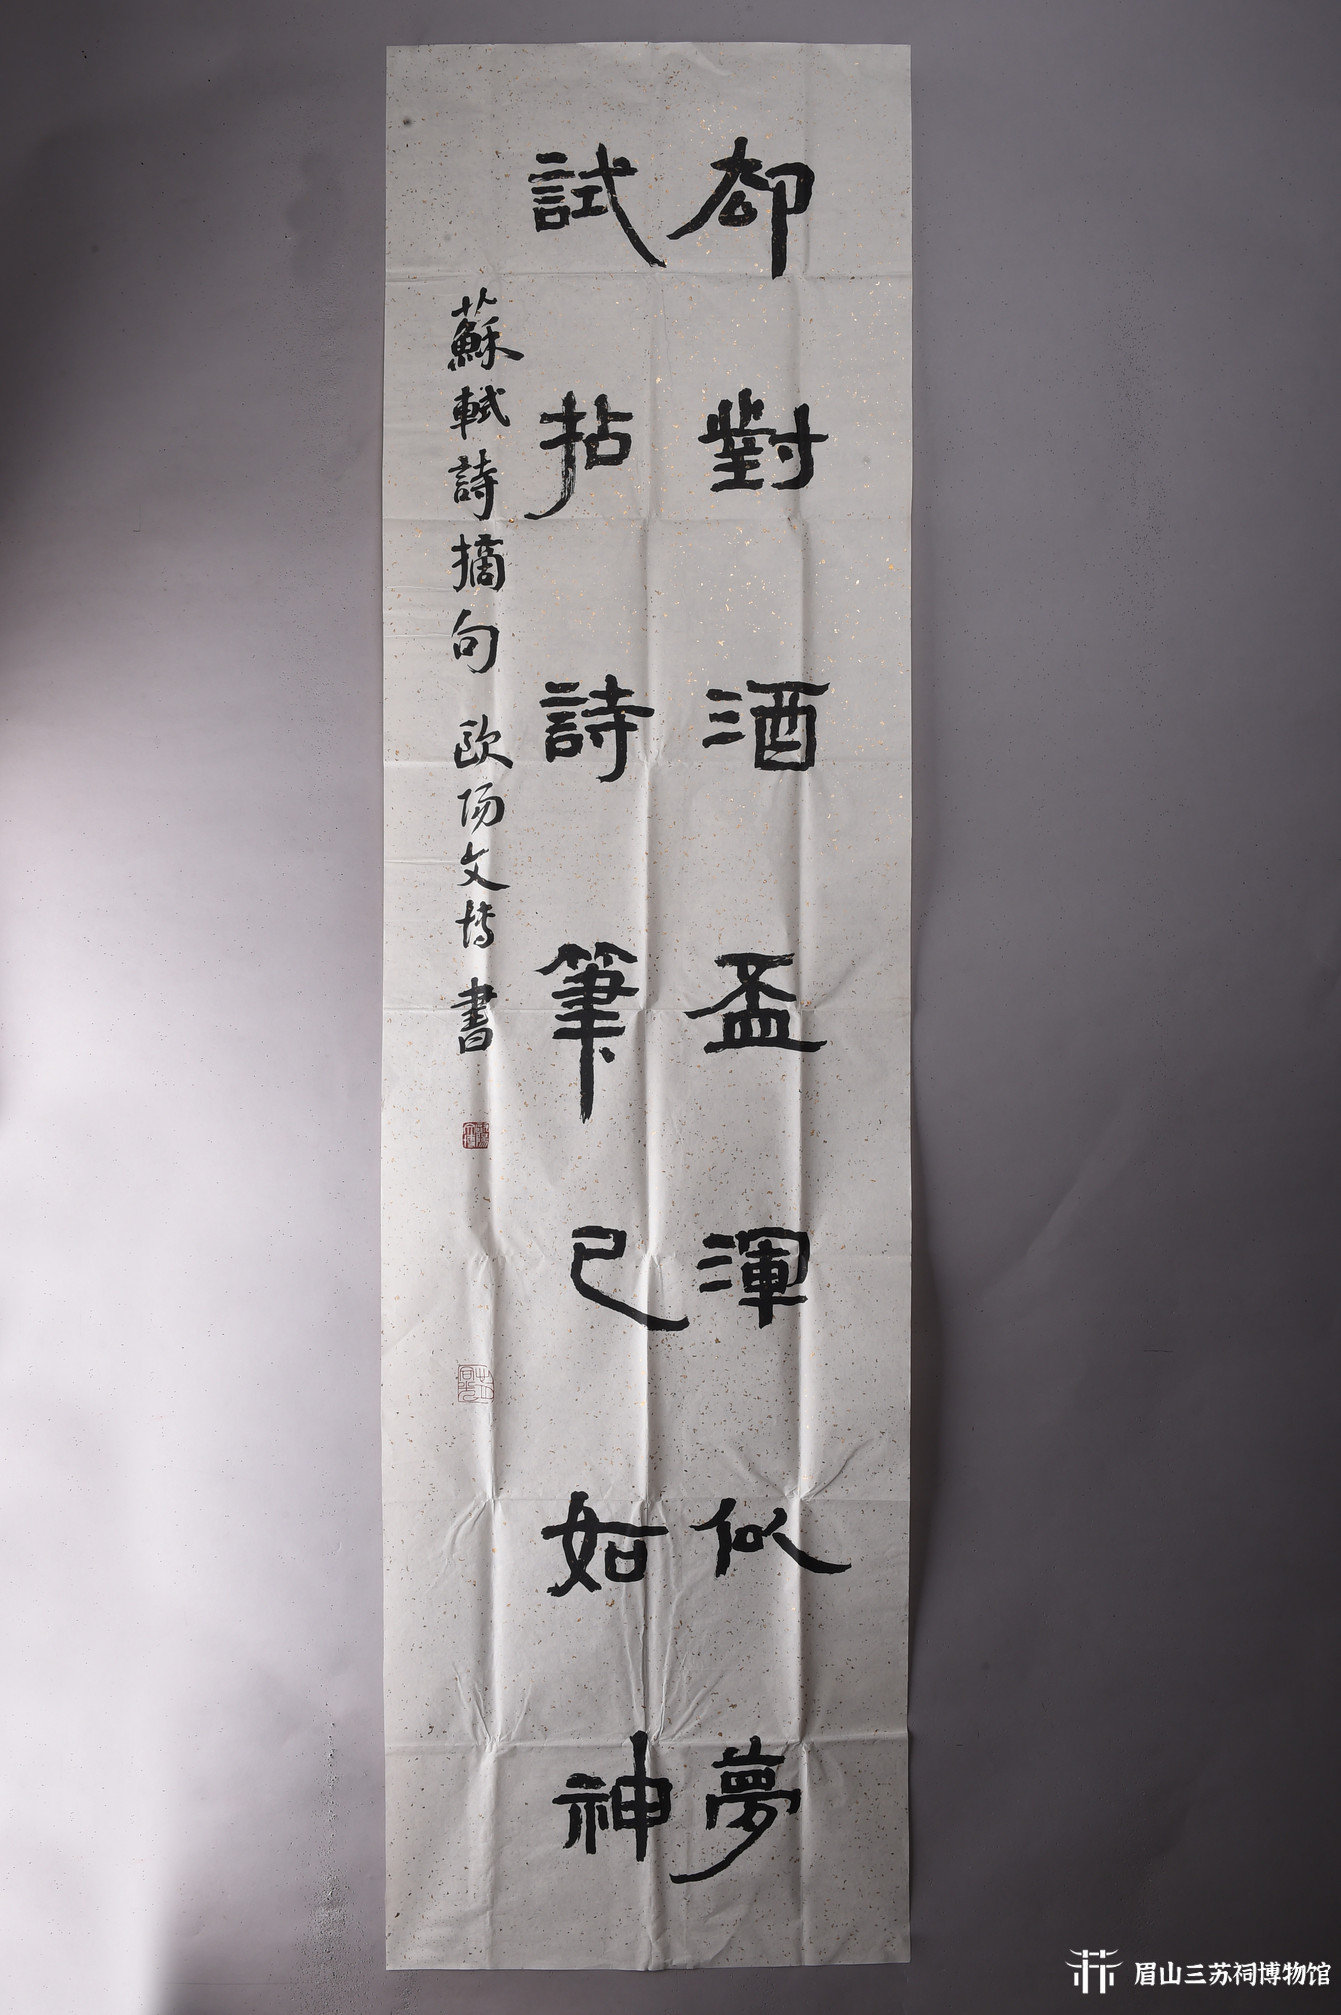 却對酒盃渾似夢
試拈詩筆已如神
蘇軾詩摘句 歐陽文博書
眉山三苏祠博物馆